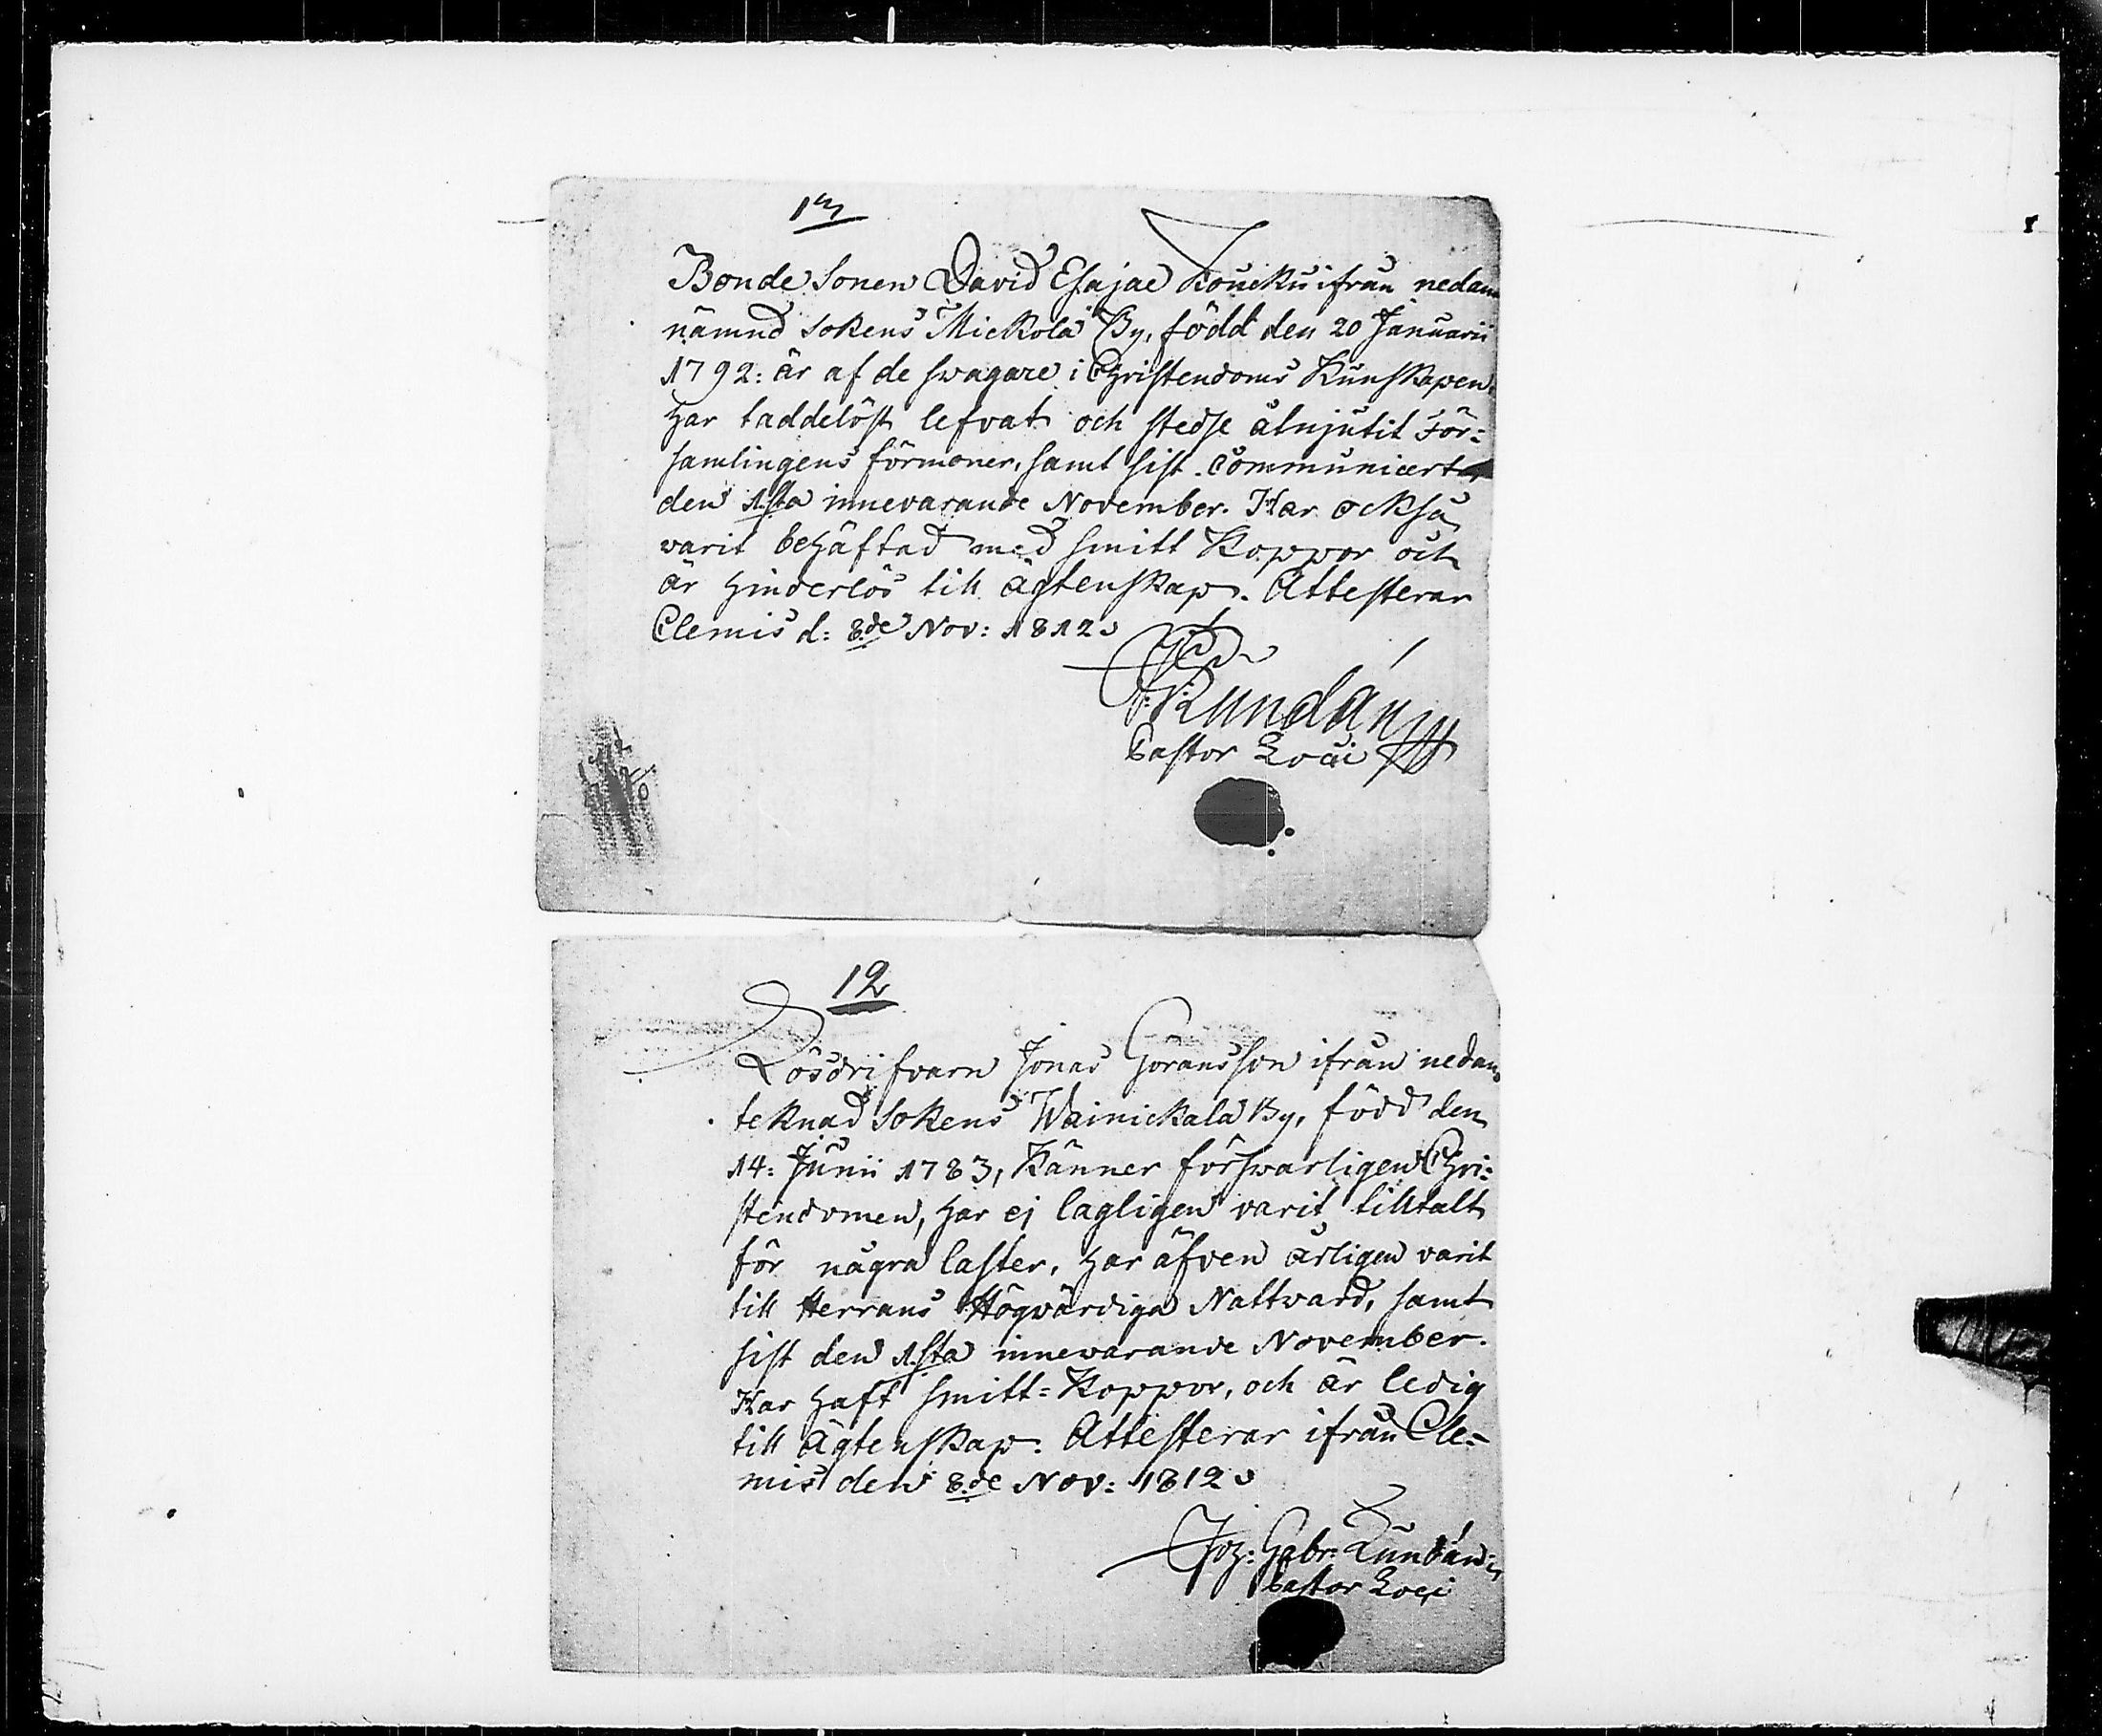 Bonde Sonen David Esajae Koucku ifrån nedan
nämnd Sokens Mickola By, född den 20 Januarii
1792: är af de swagare i Christendoms Kunskapen.
har laddelöst lefvat och stedse åtnjutit För=
samlingens förmoner, samt sist communicert
den 1sta innevarande November. Har också
varit behäftad med smitt Koppor och
är hinderlös till ägtenskap. Attesterar
Clemis d: 8de Nov: 1812
Pastor Loci
12
Lösdrifvarn Jonas Göransson ifrån nedan
teknad Sokens Wainickala By, född den
14: Junii 1783, Känner försvarligen Chri=
stendomen, har ej lagligen varit tilltalt
för några laster, har äfven årligen varit
till Herrans Högvärdiga Nattvard, samt
sist den 1sta innevarande November.
Har haft smitt=Koppor, och är ledig
till Ägtenskap. Attesterar ifrån Cle=
mis den 8de Nov: 1812
Joh: Gabr: Lundán
Pastor Loci